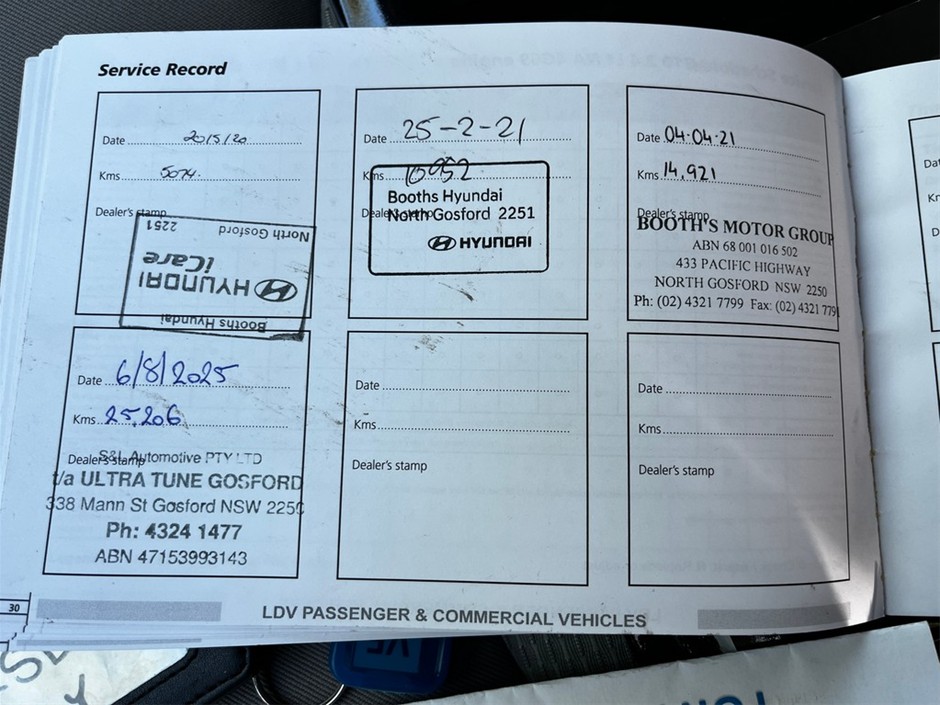 Service Record
Date 20/5/20
Kms 5074.
Dealer's stamp
Booths Hyundai
HYUNDAI
iCare
North Gosford 2251
Date 25-2-21
Kms 10952
Dealer's stamp
Booths Hyundai
North Gosford 2251
HYUNDAI
Date 04.04.21
Kms 14,921
Dealer's stamp
BOOTH'S MOTOR GROUP
ABN 68 001 016 502
433 PACIFIC HIGHWAY
NORTH GOSFORD NSW 2250
Ph: (02) 4321 7799 Fax: (02) 4321 779
Date 6/8/2025
Kms 25,206
Dealer's stamp
S&L Automotive PTY LTD
t/a ULTRA TUNE GOSFORD
338 Mann St Gosford NSW 2250
Ph: 4324 1477
ABN 47153993143
Date
Kms
Dealer's stamp
Date
Kms
Dealer's stamp
30
LDV PASSENGER & COMMERCIAL VEHICLES